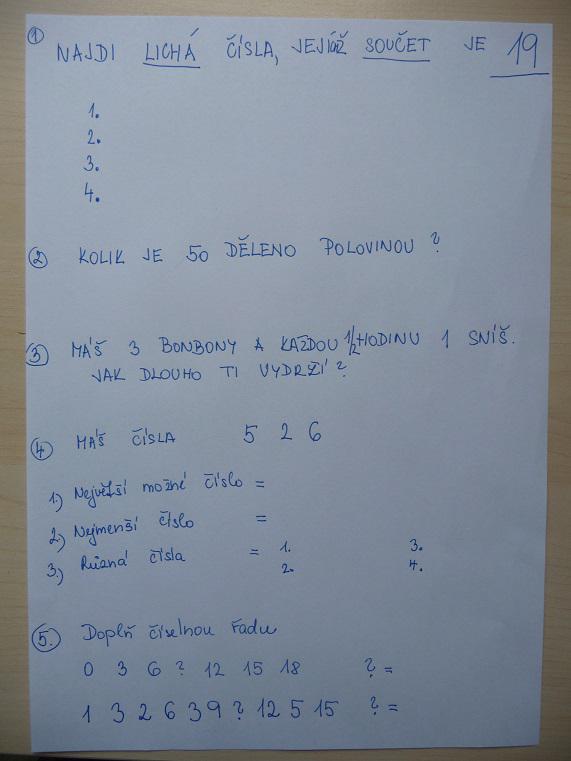 1 NAJDI LICHÁ ČÍSLA, JEJICHŽ SOUČET JE 19
1.
2.
3.
4.
2 KOLIK JE 50 DĚLENO POLOVINOU ?
3 MÁŠ 3 BONBONY A KAŽDOU 1/2 HODINU 1 SNÍŠ.
JAK DLOUHO TI VYDRŽÍ ?
4 MÁŠ ČÍSLA 5 2 6
1.) Největší možné číslo =
2.) Nejmenší číslo =
3.) Různá čísla = 1. 3.
2. 4.
5. Doplň číselnou řadu
0 3 6 ? 12 15 18 ? =
1 3 2 6 3 9 ? 12 5 15 ? =